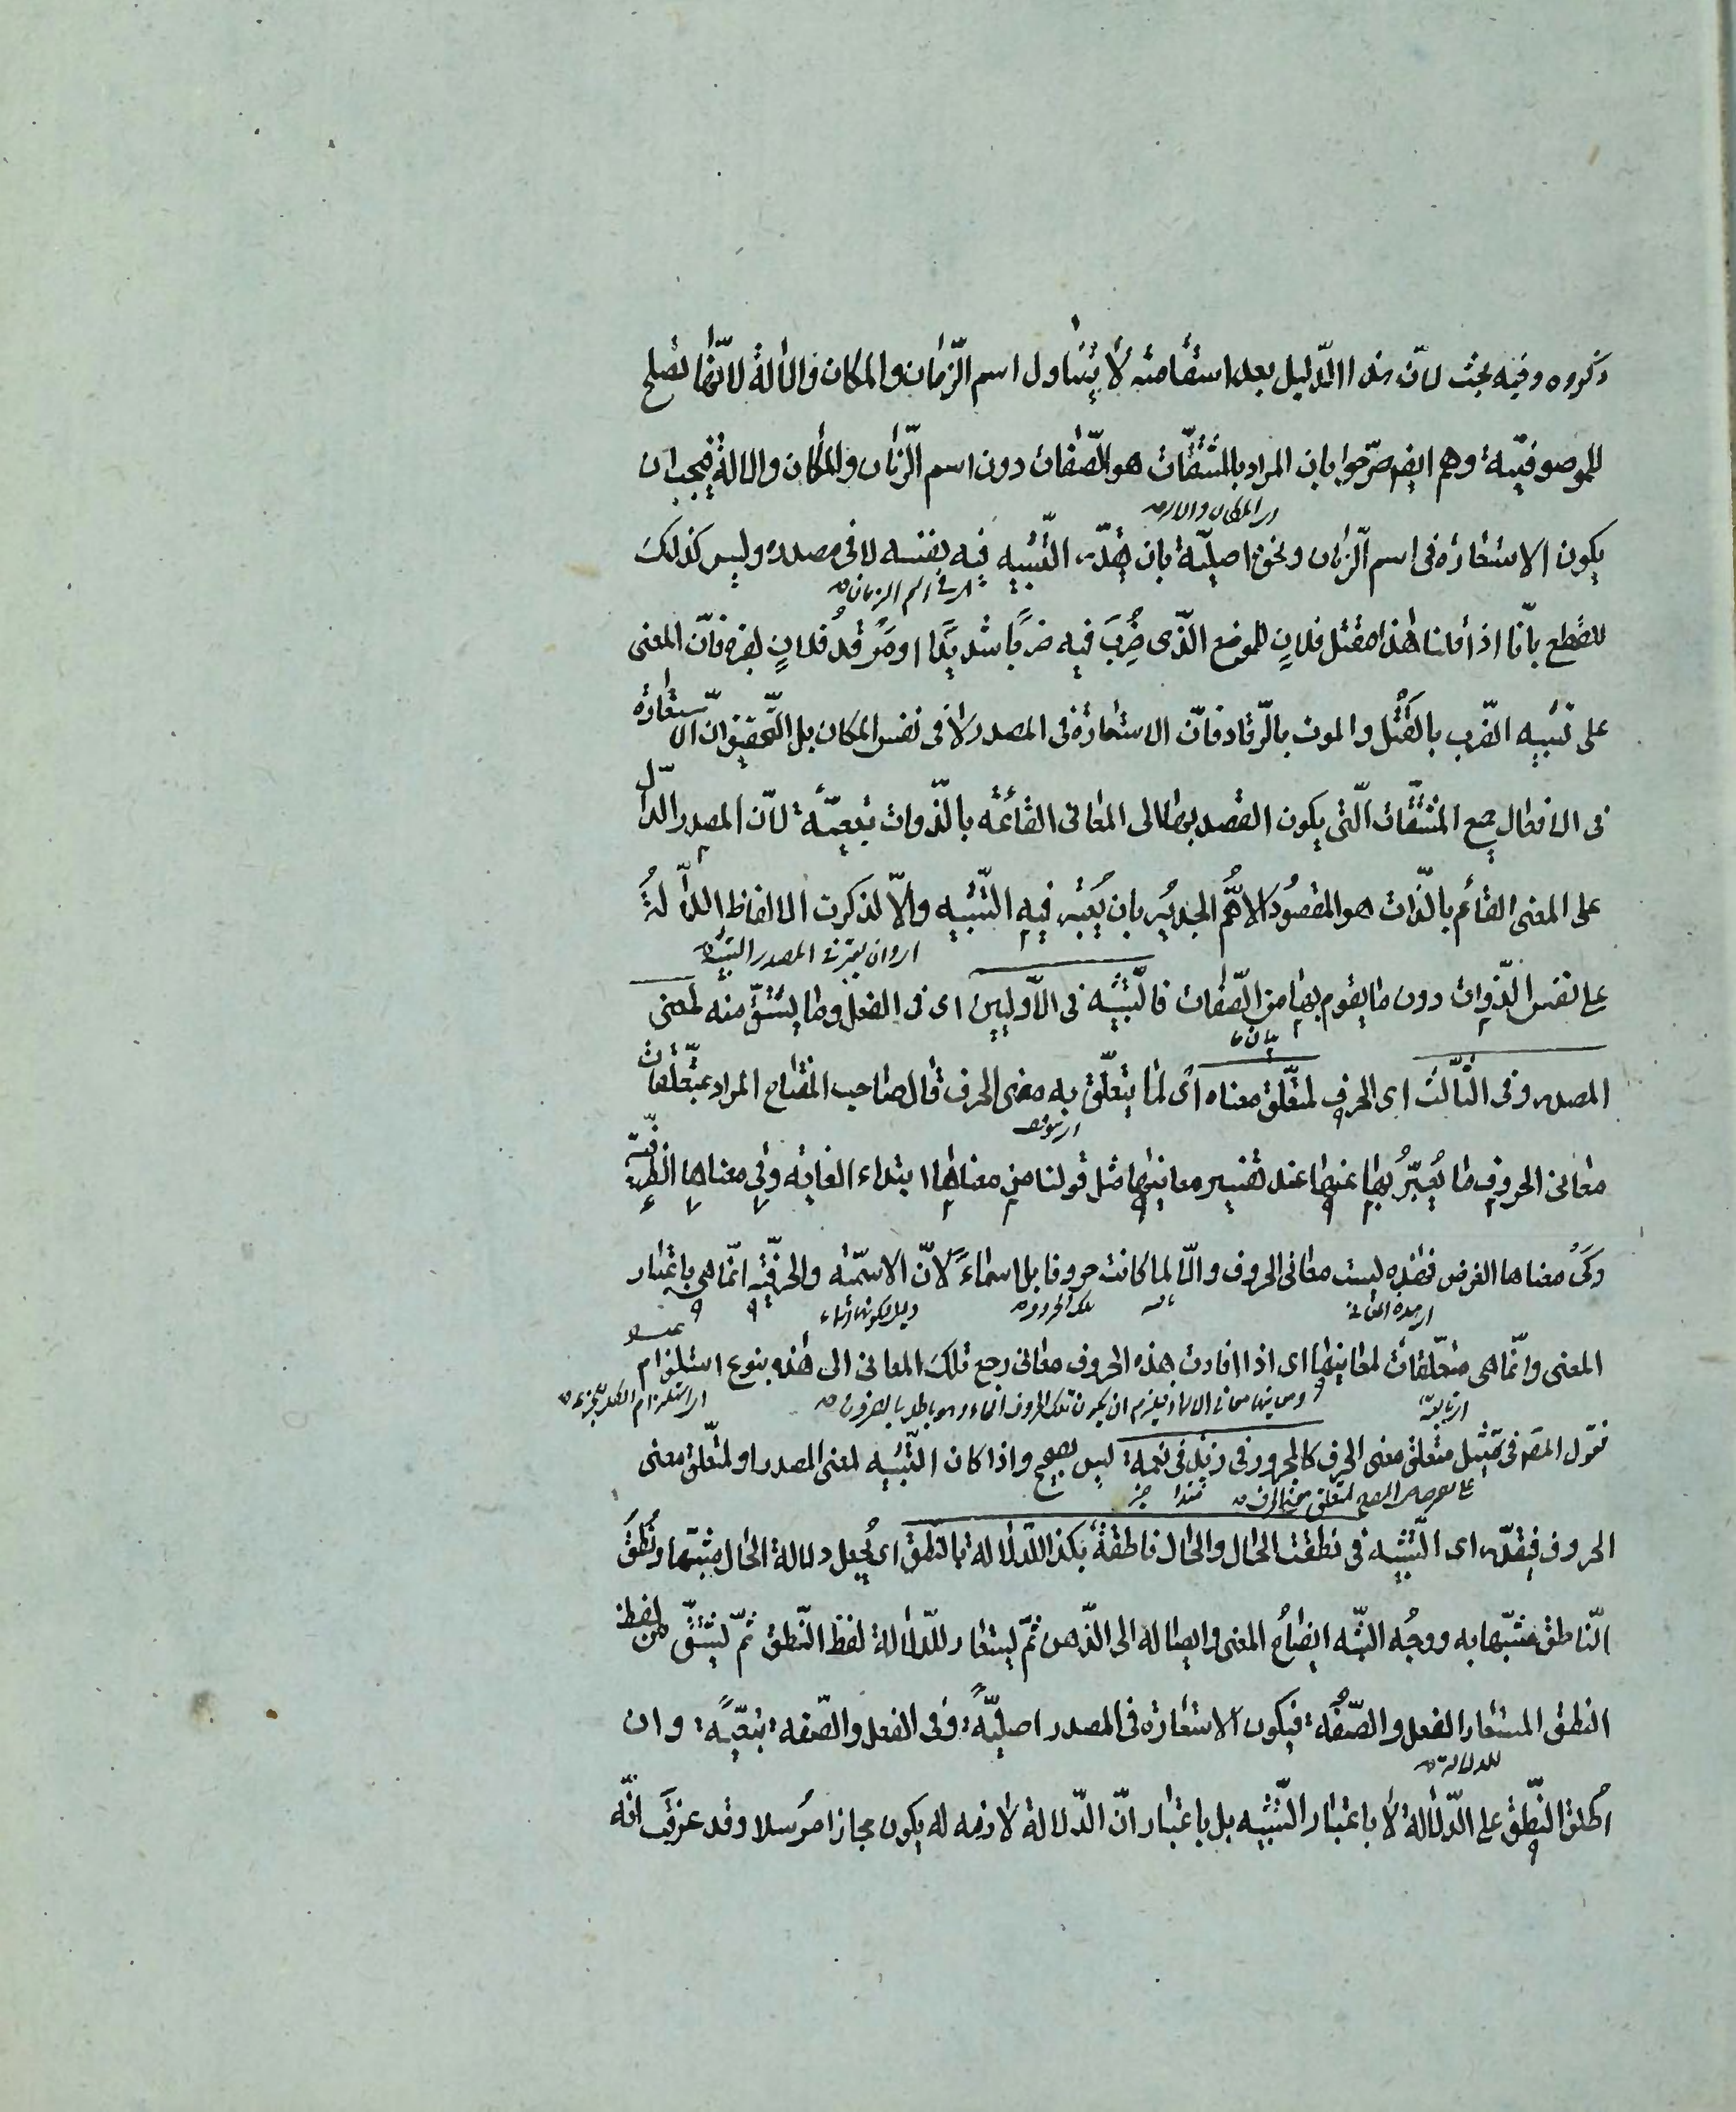 ذكروه وفيه بحث لانّ هذا الدّليل بعد استقامته لا يتناول اسم الزّمان والمكان والالة لانّها تصلح
للموصوفيّة وهم ايضا صرّحوا بان المراد بالمشتقّات هو الصّفات دون اسم الزّمان والمكان والالة فيجب ان
يكون الاستعارة فى اسم الزّمان ونحوه اصليّة بان يقدّر التّشبيه فيه بنفسه لا فى مصدره وليس كذلك
للقطع بانّا اذا قلنا هذا مقتل فلانٍ للموضع الّذى ضُرِبَ فيه ضربًا شديدًا او مرقد فلانٍ لقبره فانّ المعنى
على تشبيه الضّرب بالقتل والموت بالرّقاد فانّ الاستعارة فى المصدر لا فى نفس المكان بل التّحقيق انّ الاستعارة
فى الافعال وجميع المشتقّات الّتى يكون القصد بها الى المعانى القائمة بالذّوات تبعيّة لانّ المصدر الدّالّ
على المعنى القائم بالذّات هو المقصود الاهمّ الجدير بان يُعتبر فيه التّشبيه والّا لذكرت الالفاظ الدّالّة
او وان يعتبر فى المصدر التشبيه
على نفس الذّوات دون ما يقوم بها من الصّفات فالتّشبيه فى الاوّلين اى فى الفعل وما يشتقّ منه لمعنى
بيان ما
المصدر وفى الثّالث اى الحرف لمتعلّق معناه اى لما يتعلّق به معنى الحرف قال صاحب المفتاح المراد بمتعلّقات
معانى الحروف ما يُعبّرُ بها عنها عند تفسير معانيها مثل قولنا من معناها ابتداء الغاية وفى معناها الظّرفيّة
وكَى معناها الغرض فهذه ليست معانى الحروف والّا لما كانت حروفا بل اسماءً لانّ الاسميّة والحرفيّة انّما هى باعتبار
تلك الحروف
دليل لكونها اسماء
المعنى وانّما هى متعلّقات لمعانيها اى اذا افادت هذه الحروف معانى رجع تلك المعانى الى هذه بنوع استلزام
فقول المصّ فى تمثيل متعلّق معنى الحرف كالمجرور فى زيد فى نعمة ليس بصحيح واذا كان التّشبيه لمعنى المصدر او لمتعلّق معنى
الحروف فيقدّر اى التّشبيه فى نطقت الحال والحال ناطقة بكذا للدّلالة بالنّطق اى يُجعل دلالة الحال مشبّها ونُطقُ
النّاطق مشبّها به ووجُه الشّبه ايضاحُ المعنى وايصاله الى الذّهن ثمّ يستعار للدّلالة لفظ النّطق ثمّ يشتقّ من لفظ
النطق المستعار الفعل والصّفة فيكون الاستعارة فى المصدر اصليّةً وفى الفعل والصّفة تبعيّةً وان
للدلالة
اُطلق النّطق على الدّلالة لا باعتبار التّشبيه بل باعتبار انّ الدّلالة لازمه له يكون مجازا مرسلا وقد عرفت انّه